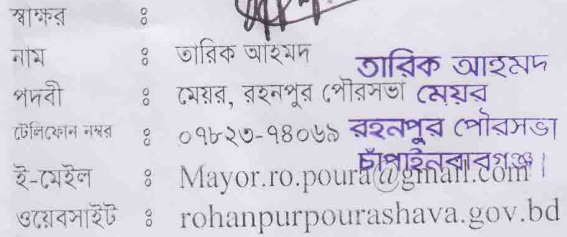 স্বাক্ষর ঃ
নাম ঃ তারিক আহমদ
পদবী ঃ মেয়র, রহনপুর পৌরসভা
টেলিফোন নম্বর ঃ ০১৮২৩-৭৪০৬৯
ই-মেইল ঃ Mayor.ro.poura@gmail.com
ওয়েবসাইট ঃ rohanpurpourashava.gov.bd
তারিক আহমদ
মেয়র
রহনপুর পৌরসভা
চাঁপাইনবাবগঞ্জ।